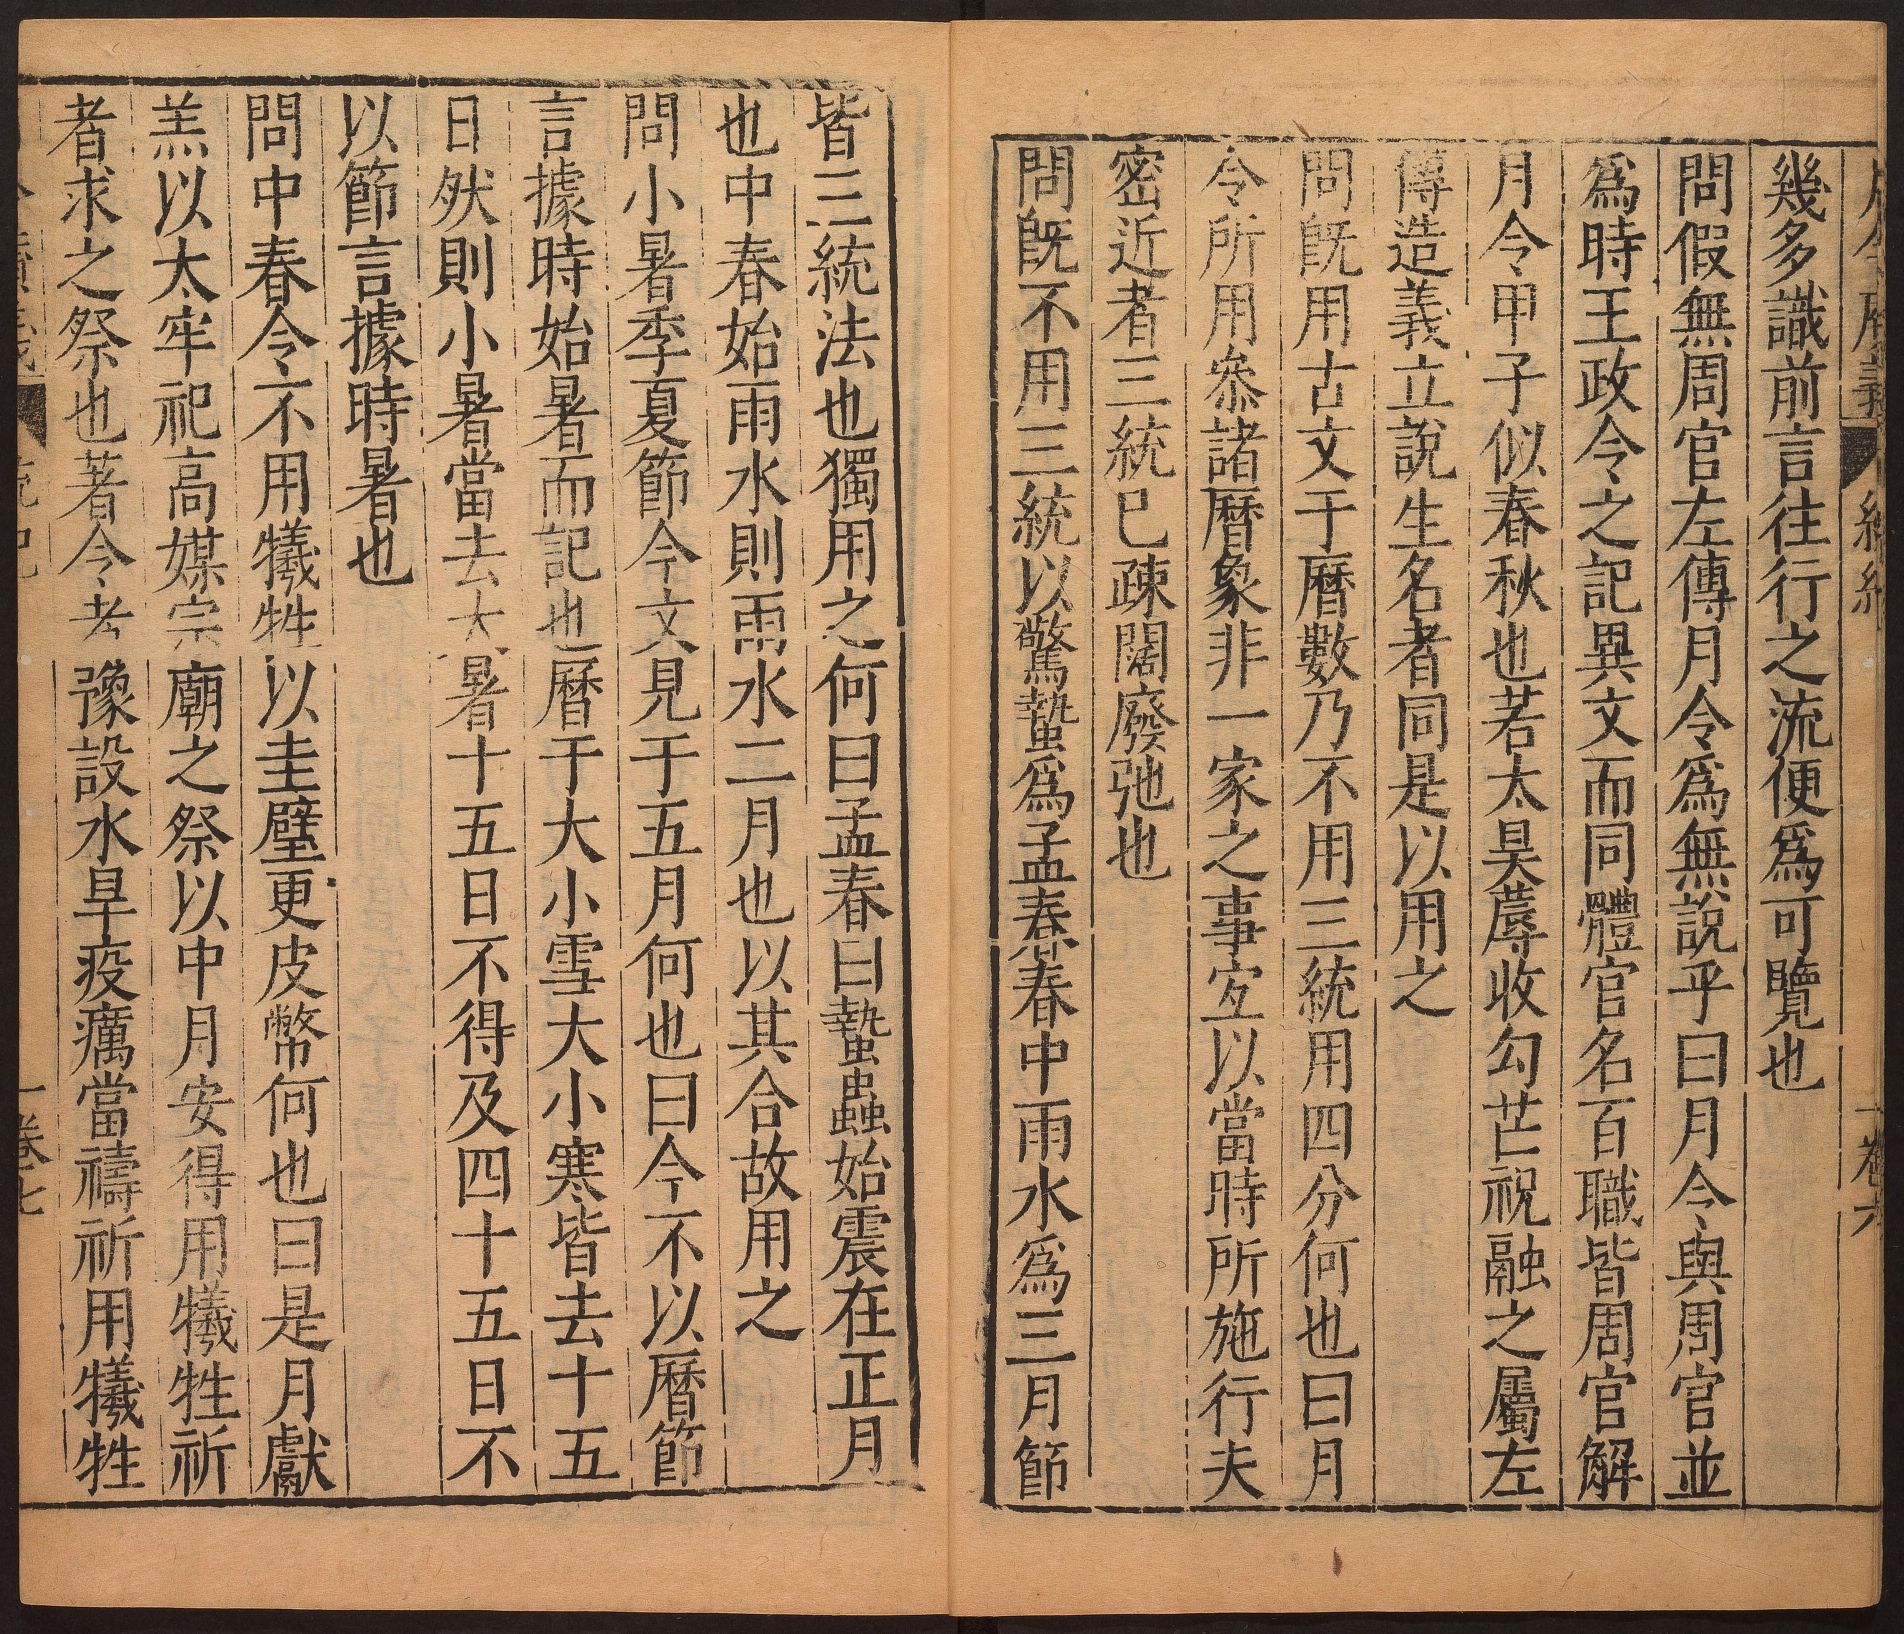 幾多識前言往行之流便爲可覽也
問假無周官左傳月令爲無說乎曰月令與周官並
爲時王政令之記異文而同體官名百職皆周官解
月令甲子似春秋也若太昊蓐收勾芒祝融之屬左
傳造義立說生名者同是以用之
問旣用古文于曆數乃不用三統用四分何也曰月
令所用叅諸曆象非一家之事㝎以當時所施行夫
密近者三統已疎闊廢弛也
問旣不用三統以驚蟄爲孟春春中雨水爲三月節
皆三統法也獨用之何曰孟春曰蟄蟲始震在正月
也中春始雨水則雨水二月也以其合故用之
問小暑季夏節今文見于五月何也曰今不以曆節
言據時始暑而記也曆于大小雪大小寒皆去十五
日然則小暑當去大暑十五日不得及四十五日不
以節言據時暑也
問中春令不用犧牲以圭璧更皮幣何也曰是月獻
羔以太牢祀高媒宗廟之祭以中月安得用犧牲祈
者求之祭也著令者豫設水旱疫癘當禱祈用犧牲
卷七